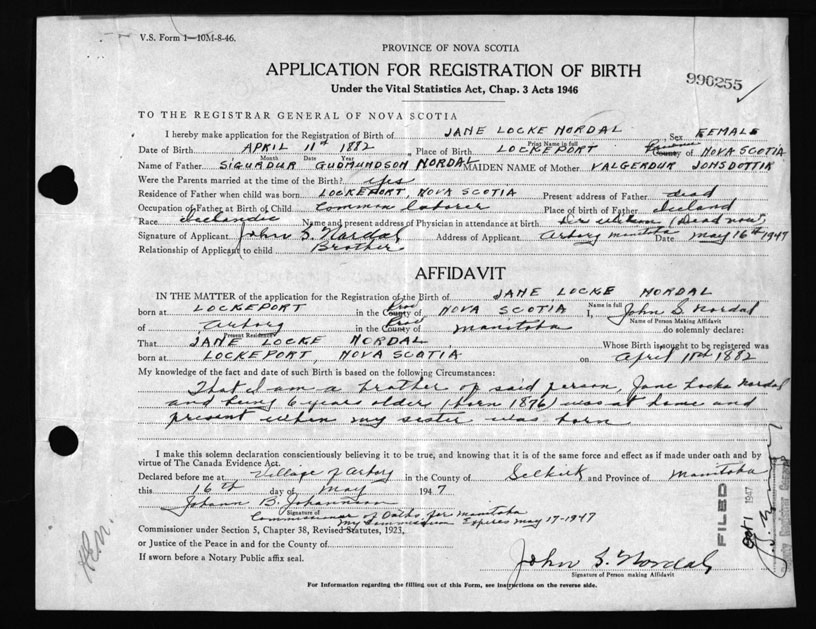 V.S. Form 1—10M-8-46.
PROVINCE OF NOVA SCOTIA
APPLICATION FOR REGISTRATION OF BIRTH
990255
Under the Vital Statistics Act, Chap. 3 Acts 1946
TO THE REGISTRAR GENERAL OF NOVA SCOTIA
I hereby make application for the Registration of Birth of JANE LOCKE NORDAL Sex FEMALE
Print Name in full
Date of Birth APRIL 11th 1882 Place of Birth LOCKEPORT Province County of NOVA SCOTIA
Month Date Year
Name of Father SIGURDUR GUDMUNDSON NORDAL MAIDEN NAME of Mother VALGERDUR JONSDOTTIR
Were the Parents married at the time of the Birth? yes
Residence of Father when child was born LOCKEPORT, NOVA SCOTIA Present address of Father dead
Occupation of Father at Birth of Child Common laborer Place of birth of Father Iceland
Race Icelandic Name and present address of Physician in attendance at birth Dr (Dead now)
Signature of Applicant John S. Nordal Address of Applicant Arborg Manitoba Date May 16th 1947
Relationship of Applicant to child Brother
AFFIDAVIT
IN THE MATTER of the application for the Registration of the Birth of JANE LOCKE NORDAL
Name in full
born at LOCKEPORT in the County Prov of NOVA SCOTIA I, John S. Nordal
Name of Person Making Affidavit
of Arborg in the County Prov of Manitoba do solemnly declare:
Present Residence
That JANE LOCKE NORDAL Whose Birth is sought to be registered was
born at LOCKEPORT, NOVA SCOTIA on April 11th 1882
My knowledge of the fact and date of such Birth is based on the following Circumstances:
That I am a brother of said person, Jane Locke Nordal
and being 6 years older (born 1876) was at home and
present when my sister was born
I make this solemn declaration conscientiously believing it to be true, and knowing that it is of the same force and effect as if made under oath and by
virtue of The Canada Evidence Act.
Declared before me at Village of Arborg in the County of Selkirk and Province of Manitoba
this 16th day of May 1947
Johann B. Johannson
Signature of
Commissioner of Oaths for Manitoba
My Commission Expires May 17-1947
Commissioner under Section 5, Chapter 38, Revised Statutes, 1923,
or Justice of the Peace in and for the County of
If sworn before a Notary Public affix seal.
John S. Nordal
Signature of Person making Affidavit
For Information regarding the filling out of this Form, see instructions on the reverse side.
FILED
OCT 1 1947